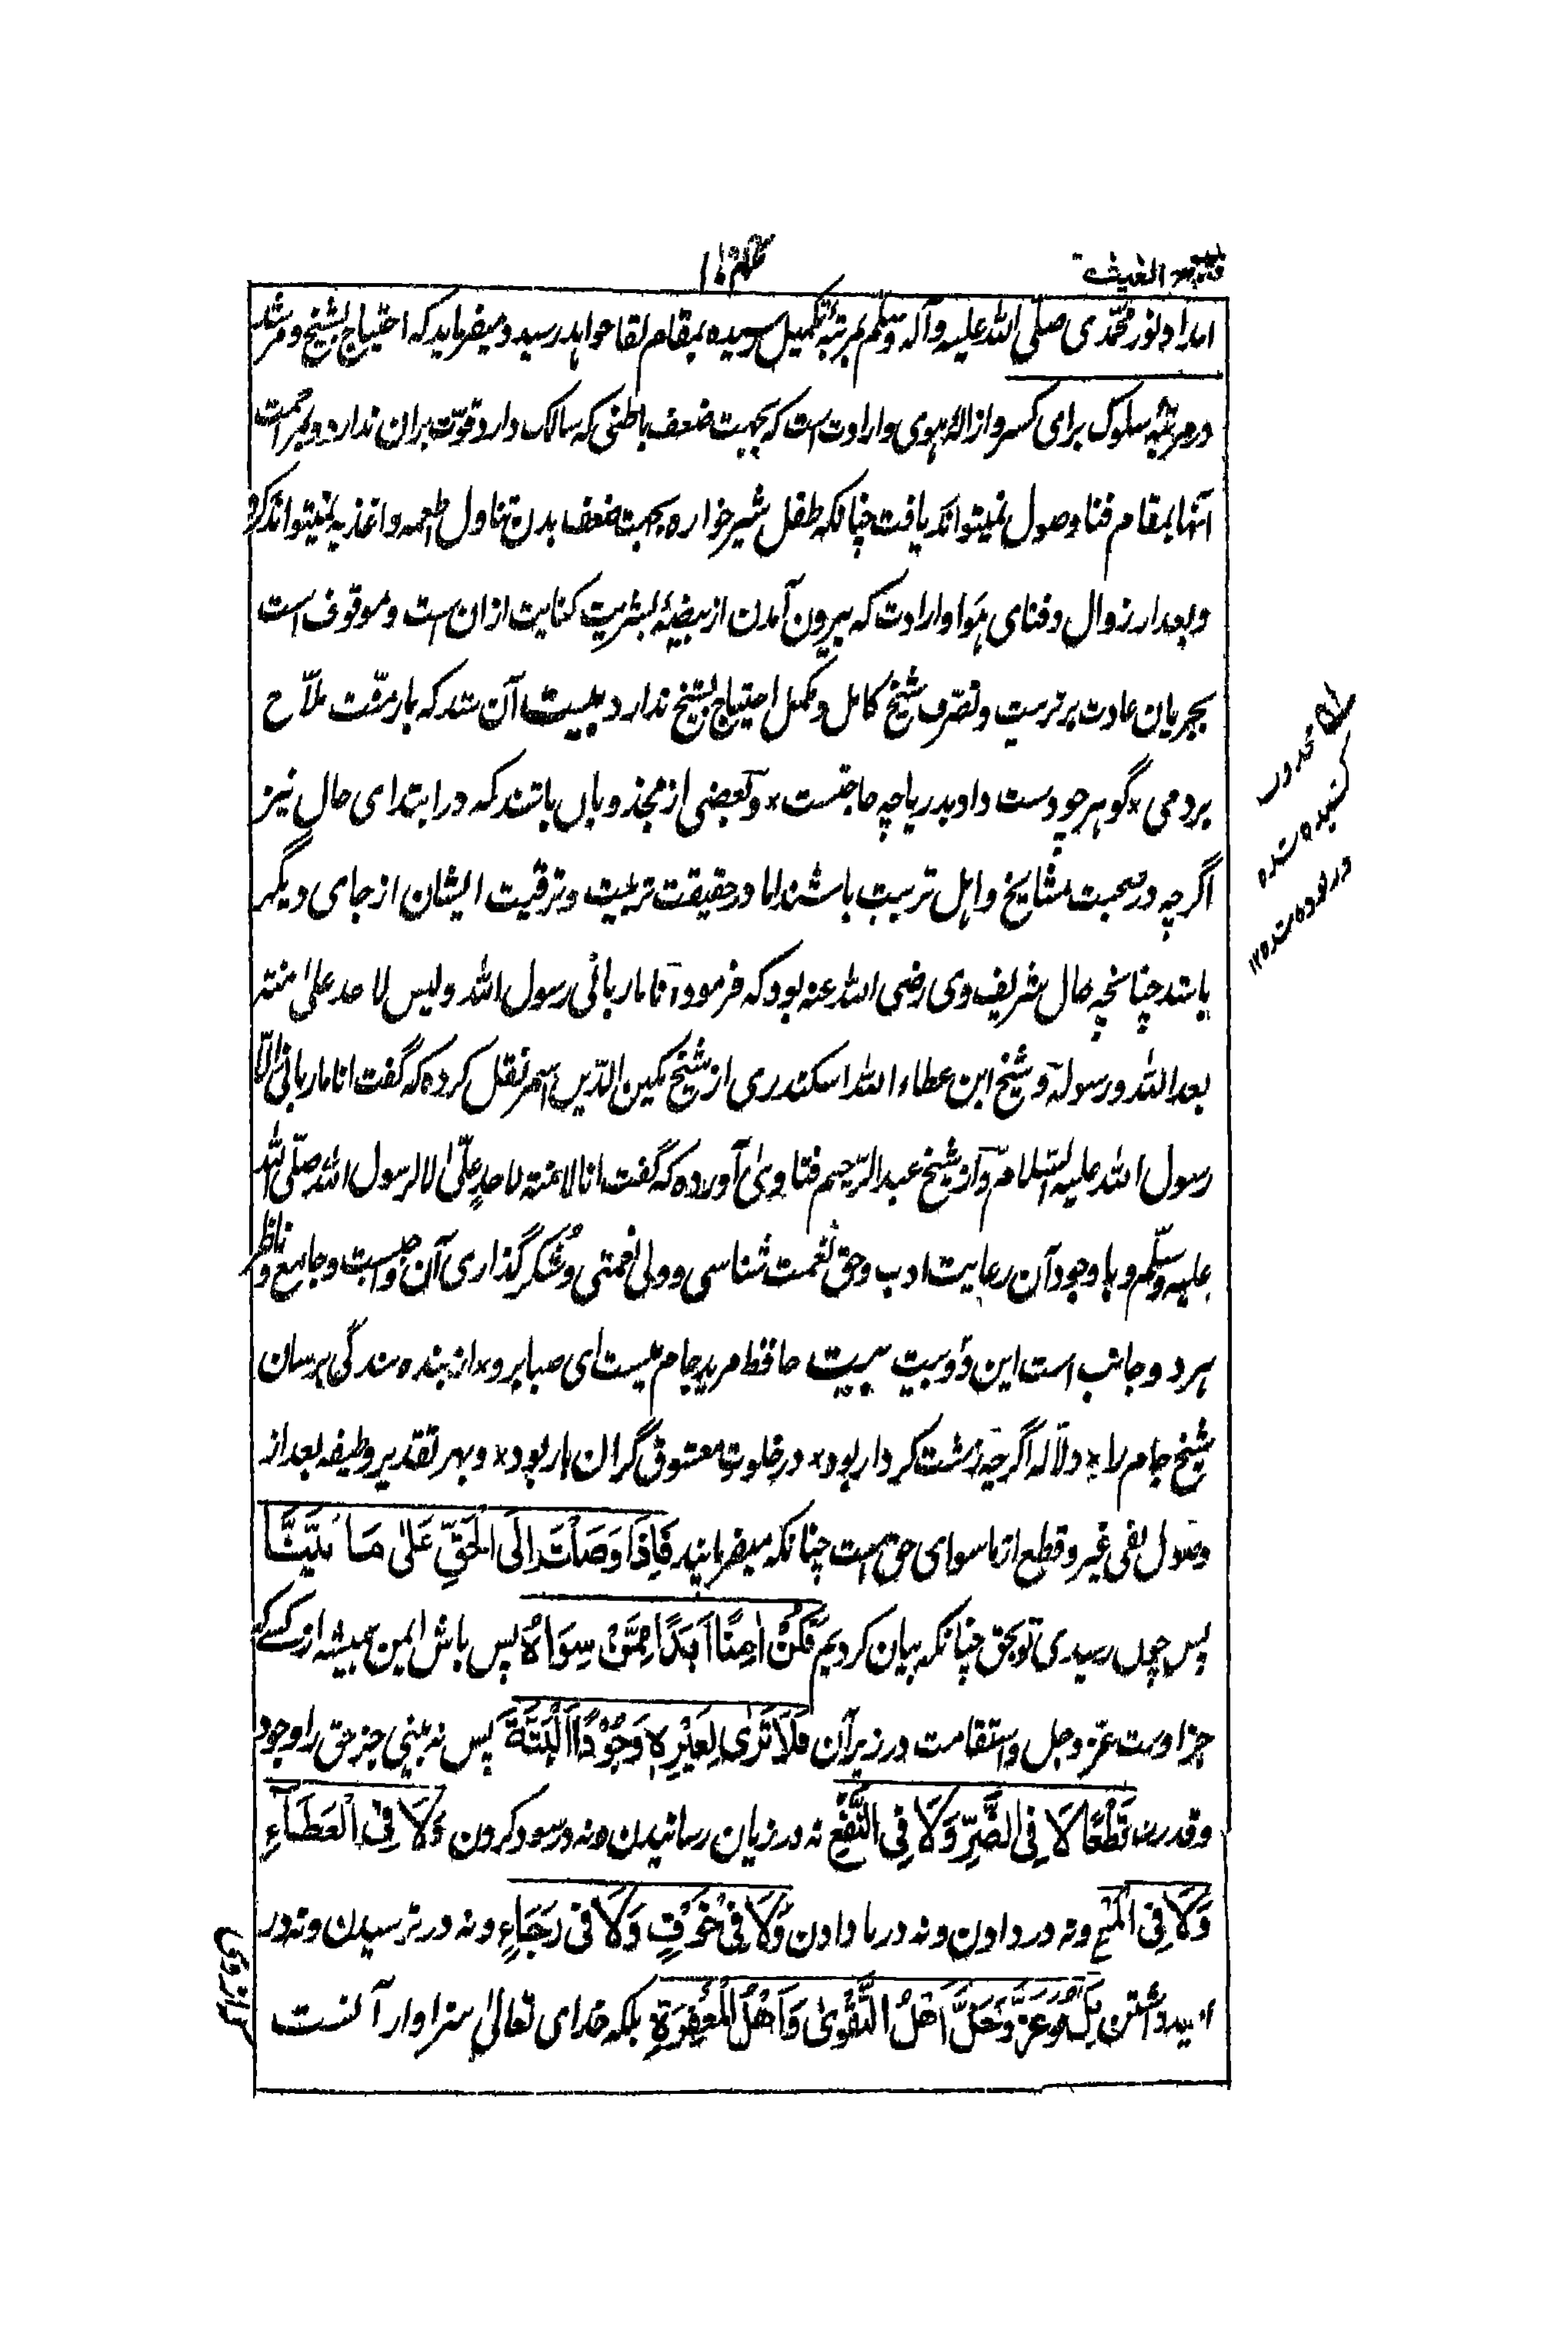 فتوح الغیب
امداد نور محمّدی صلّی اللہ علیہ وآلہ وسلّم بمرتبۂ تکمیل رسیدہ بمقام لقا خواہد رسید و میفرماید کہ احتیاج بشیخ و مرشد
در مرتبۂ سلوک برای کسر و ازالۂ ہوی و ارادت است کہ بجہت ضعف باطنی کہ سالک دارد قوّت بران ندارد و بمزاحمت
آنہا بمقام فنا وصول نمیتواند یافت چنانکہ طفل شیر خوارہ بجہت ضعف بدن تناول اطعمہ و اغذیہ نمیتواند کرد
و بعد از زوال و فنای ہوا و ارادت کہ بیرون آمدن از بیضۂ بشریت کنایت ازان است و موقوف است
بجریان عادت بر تربیت و تصرّف شیخ کامل و مکمل احتیاج بشیخ ندارد بیت آن شد کہ بار منّت ملّاح
بردمی * گوہر چو دست داد بدریا چہ حاجتست * و بعضی از مجذوبان باشند کہ در ابتدای حال نیز
اگر چہ در صحبت مشایخ و اہل تربیت باشند اما در حقیقت تربیت و ترقیت ایشان از جای دیگر
باشد چنانچہ حال شریف وی رضی اللہ عنہ بود کہ فرمود انا ما ربانی رسول اللہ ولیس لاحد علیٰ منتہ
بعد اللہ ورسولہ و شیخ ابن عطاء اللہ اسکندری از شیخ مکین الدّین اسمر نقل کردہ کہ گفت انا ما ربانی الّا
رسول اللہ علیہ السّلام و از شیخ عبد الرّحیم قناوی آوردہ کہ گفت انا لا منتہ لاحدٍ علیّ الا لرسول اللہ صلّی اللہ
علیہ وسلّم و باوجود آن رعایت ادب و حق نعمت شناسی و ولی نعمتی و شکر گذاری آن واجبست و جامع و ناظر
ہر دو جانب است این دو بیت بیت حافظ مرید جام میست ای صبا برو * از بندہ بندگی برسان
شیخ جام را * دلالہ اگر چہ زشت کردار بود * در خلوت معشوق گران بار بود * و بہر تقدیر وظیفہ بعد از
وصول نفی غیر و قطع از ماسوای حق است چنانکہ میفرمایند فَاِذَا وَصَلْتَ اِلَی الْحَقِّ عَلٰی مَا بَیَّنَّا
پس چون رسیدی تو بحق چنانکہ بیان کردیم فَکُنْ اٰمِنًا اَبَدًا مِمَّنْ سِوَاہُ پس باش ایمن ہمیشہ از کسے کہ
جز اوست عزّ و جل و استقامت ورز بران فَلَا تَرٰی لِغَیْرِہٖ وُجُوْدًا اَلْبَتَّۃَ پس نہ بینی جز حق را وجود
و قدرت قَطْعًا لَا فِی الضَّرِّ وَلَا فِی النَّفْعِ نہ در زیان رسانیدن و نہ در سود کردن وَلَا فِی الْعَطَاءِ
وَلَا فِی الْمَنْعِ و نہ در دادن و نہ در نا دادن وَلَا فِیْ خَوْفٍ وَلَا فِیْ رَجَاءٍ و نہ در ترسیدن و نہ در
امید داشتن بَلْ ہُوَ عَزَّ وَجَلَّ اَہْلُ التَّقْوٰی وَاَہْلُ الْمَغْفِرَۃِ بلکہ خدای تعالیٰ سزاوار آنست